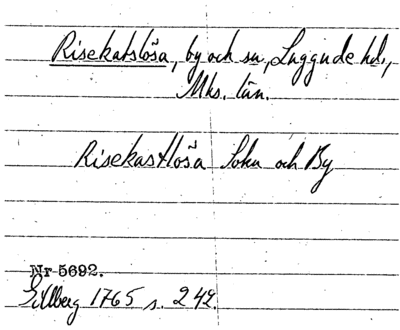 Risekatslösa, by och sn, Luggude hd.,
Mhs. län.
Risekastlösa Sokn och By
Nr 5692.
Gillberg 1765 s. 242.